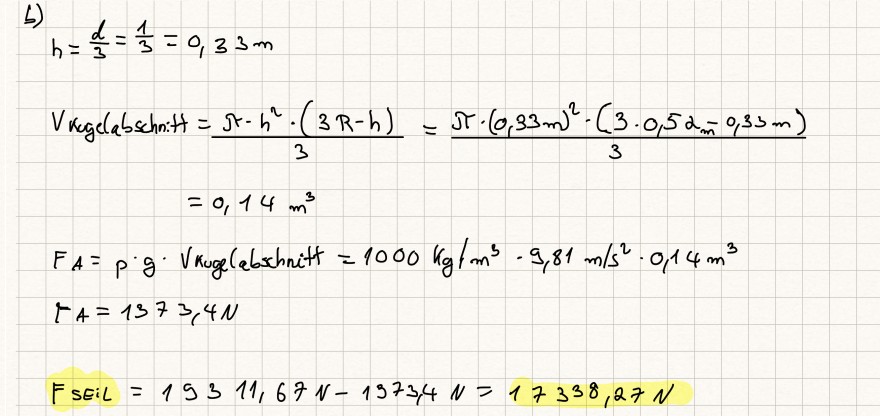 b)
h = d/3 = 1/3 = 0,33m
V Kugelabschnitt = π · h² · (3R-h) / 3 = π · (0,33m)² · (3 · 0,52m - 0,33m) / 3
= 0,14 m³
FA = p · g · V Kugelabschnitt = 1000 Kg/m³ · 9,81 m/s² · 0,14 m³
FA = 1373,4 N
F SEIL = 19311,67 N - 1973,4 N = 17338,27 N